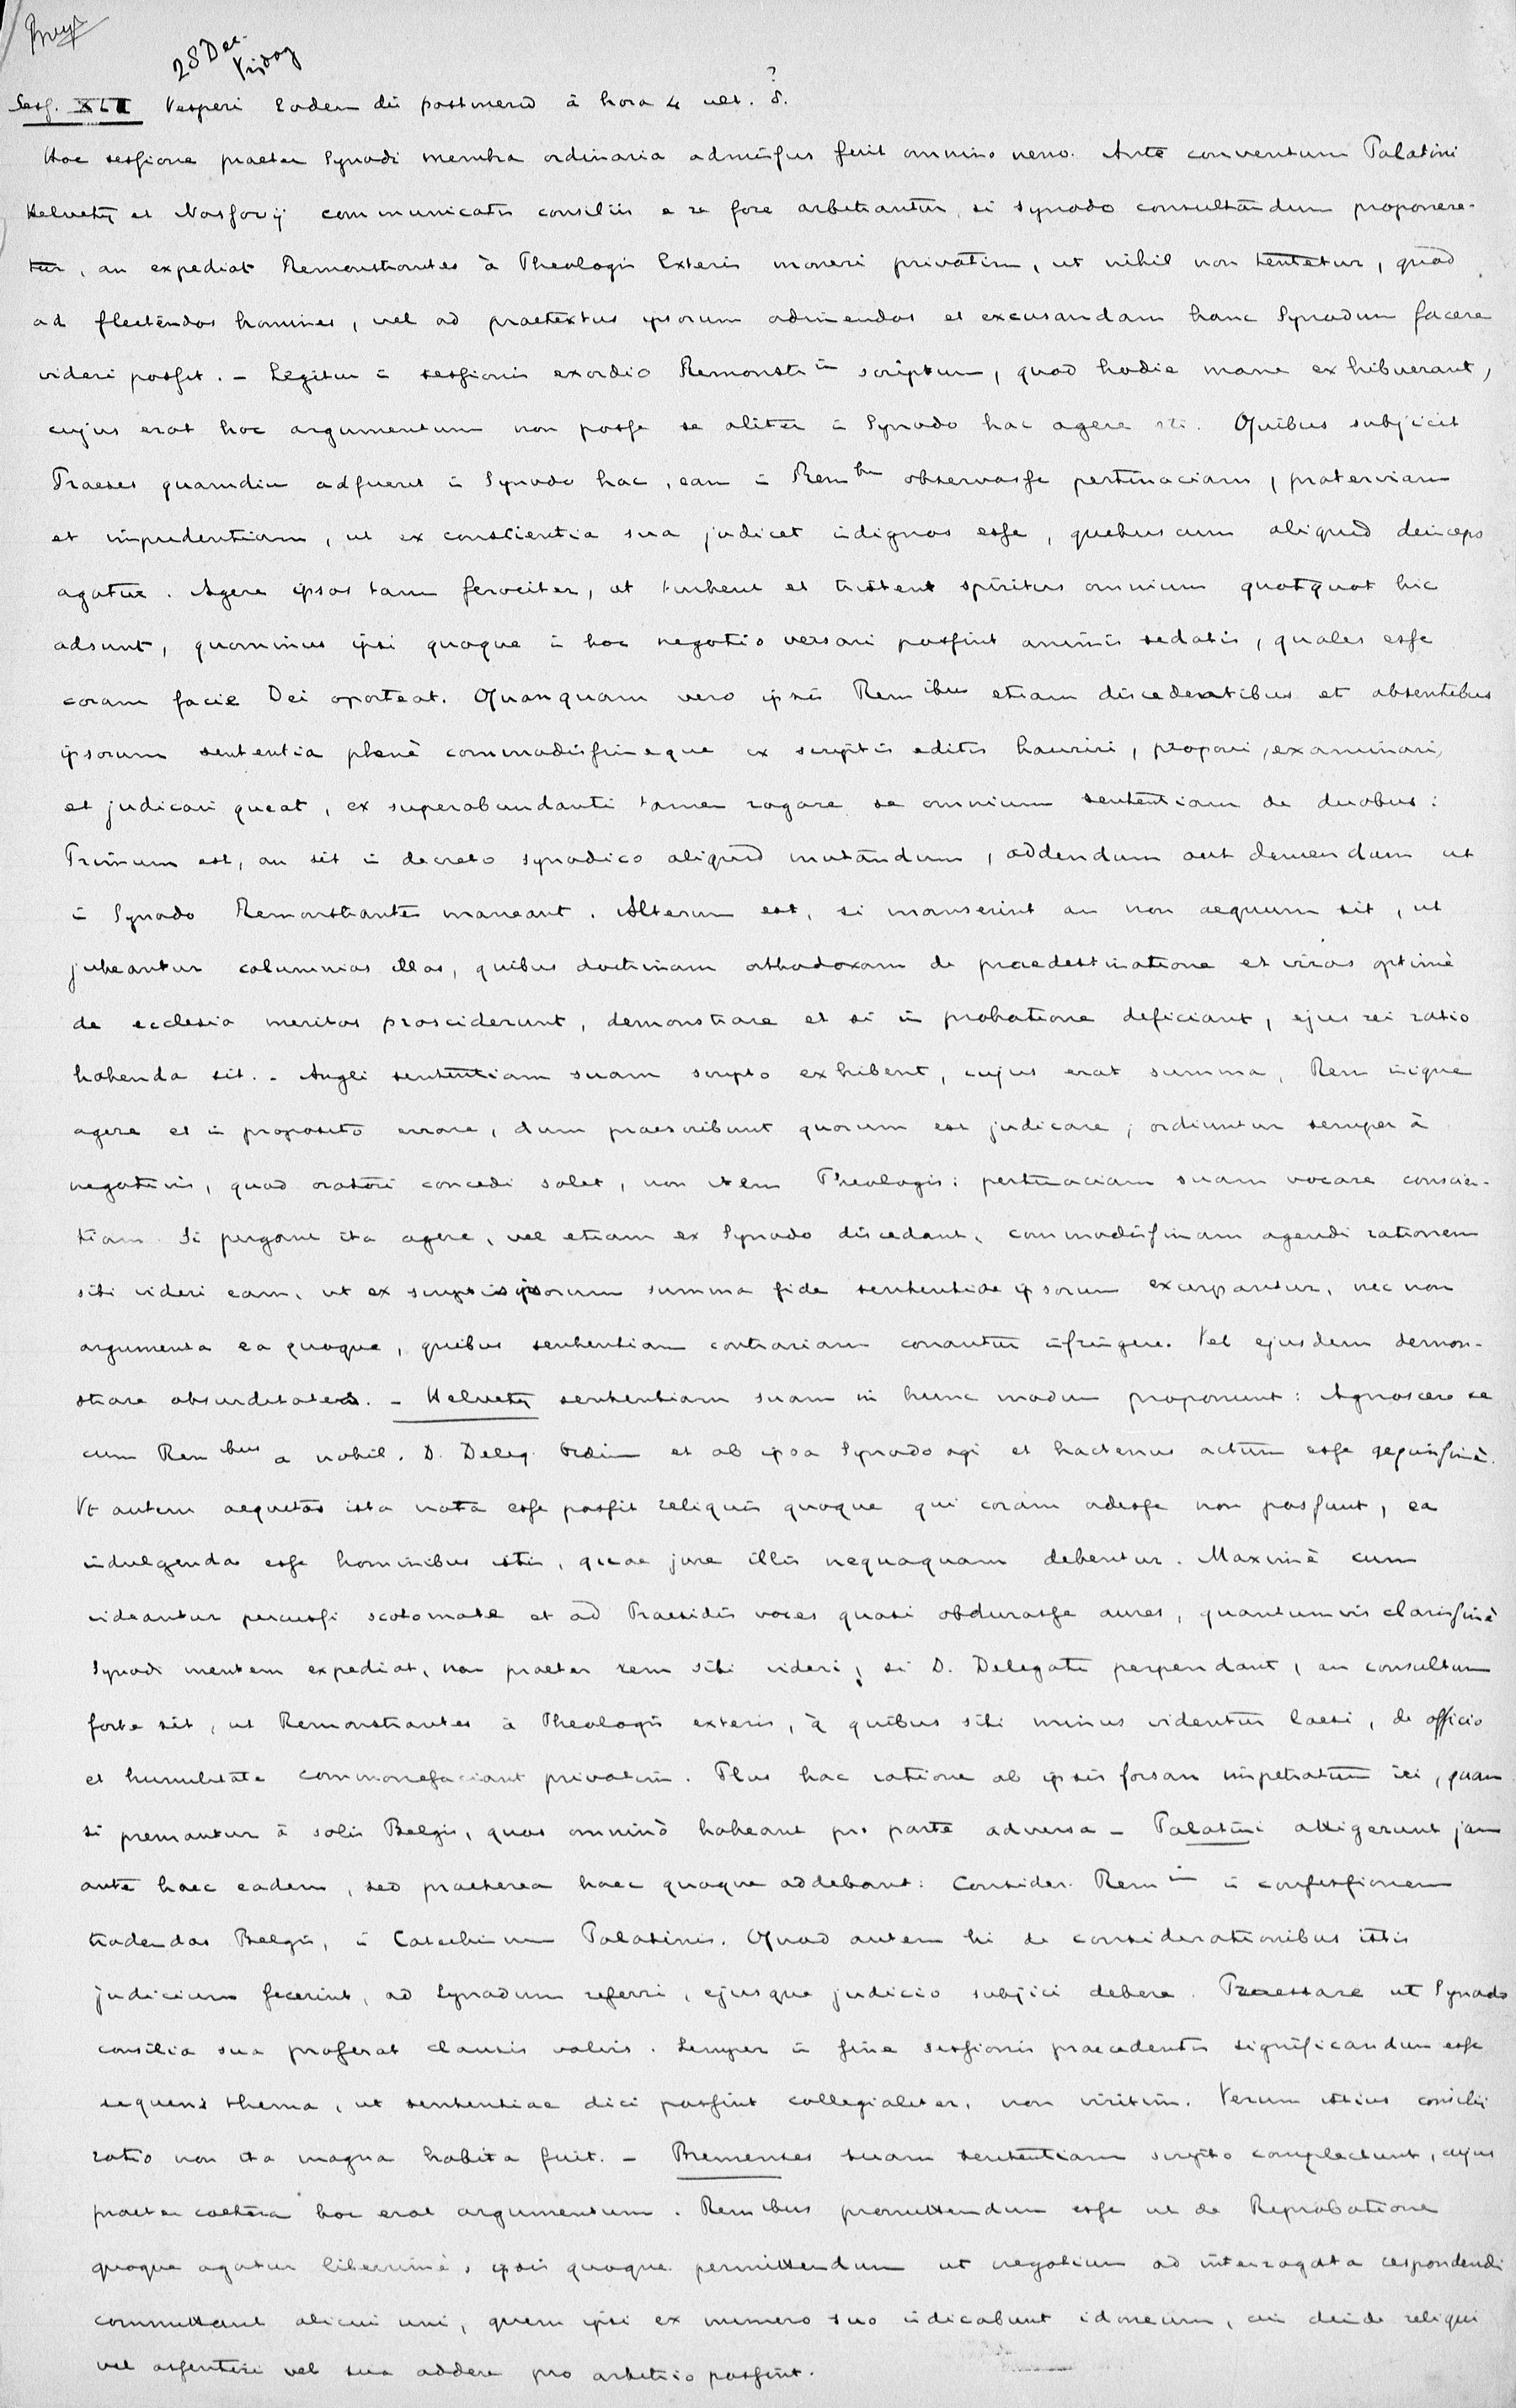 28 Dec.
Friday
Sess. XLI Vesperi eodem die postmerid à hora 4 usr. 8. ?
Hac sessione praeter Synodi membra ordinaria admissus fuit omnino nemo. Ante conventum Palatini
Helvetij et Nassovij communicatis consiliis e re fore arbitrantur, si synodo consultandum proponere-
tur, an expediat Remonstrantes à Theologis Exteris moneri privatim, ut nihil non tentetur, quod
ad flectendos homines, vel ad praetextus ipsorum adimendos et excusandam hanc Synodum facere
videri possit. - Legitur ī sessionis exordio Remonstr um scriptum, quod hodie mane exhibuerant,
cujus erat hoc argumentum non posse se aliter ī Synodo hac agere etc. Quibus subjicit
Praeses quamdiu adfuerit ī Synodo hac, eam ī Rem bus observasse pertinaciam, proterviam
et impudentiam, ut ex conscientia sua judicet indignos esse, quibuscum aliquid deinceps
agatur. Agere ipsos tam ferociter, ut turbent et tristent spiritus omnium quotquot hic
adsunt, quominus ipsi quoque ī hoc negotio versari possint animis sedatis, quales esse
coram facie Dei oporteat. Quanquam vero ipsis Rem ibus etiam discedentibus et absentibus
ipsorum sententia plenè commodissimeque ex scriptis editis hauriri, proponi, examinari,
et judicari queat, ex superabundanti tamen rogare se omnium sententiam de duobus:
Primum est, an sit ī decreto synodico aliquid mutandum, addendum aut demendum ut
ī Synodo Remonstrantes maneant. Alterum est, si manserint an non aequum sit, ut
jubeantur calumnias illas, quibus doctrinam orthodoxam de praedestinatione et viros optimè
de ecclesia meritos prosciderunt, demonstrare et si in probatione deficiant, ejus rei ratio
habenda sit. - Angli sententiam suam scripto exhibent, cujus erat summa, Rem inique
agere et ī proposito errare, dum praescribunt quorum est judicare; ordiuntur semper à
negativis, quod oratori concedi solet, non item Theologis: pertinaciam suam vocare conscien-
tiam. Si pergant ita agere, vel etiam ex Synodo discedant, commodissimam agendi rationem
sibi videri eam, ut ex scriptis ipsorum summa fide sententiae ipsorum excerpantur, nec non
argumenta ea quoque, quibus sententiam contrariam conantur infringere. Vel ejusdem demon-
strare absurditates. - Helvetij sententiam suam in hunc modum proponunt: Agnoscere se
cum Rem ibus a nobil. D. Deleg. Ordin et ab ipsa Synodo agi et hactenus actum esse aequissimè.
Vt autem aequitas ista nota esse possit reliquis quoque qui coram adesse non possunt, ea
indulgenda esse hominibus istis, quae jure illis nequaquam debentur. Maximè cum
videantur percussi scotomate et ad Praesidis voces quasi obdurasse aures, quantumvis clarissimè
Synodi mentem expediat, non praeter rem sibi videri, si D. Delegati perpendant, an consultum
forte sit, ut Remonstrantes à Theologis exteris, à quibus sibi minus videntur laesi, de officio
et humilitate commonefaciant privatim. Plus hac ratione ab ipsis forsan impetratum iri, quam
si premantur à solis Belgis, quos omninò habeant pro parte adversa - Palatini attigerunt jam
ante haec eadem, sed praeterea haec quoque addebant: Consider. Rem um ī confessionem
tradendas Belgis, ī Catechismum Palatinis. Quod autem hi de considerationibus istis
judicium fecerint, ad Synodum referri, ejusque judicio subjici debere. Praestare ut Synodo
consilia sua proferat clausis valvis. Semper ī fine sessionis praecedentis significandum esse
sequens thema, ut sententiae dici possint collegialiter, non viritim. Verum istius consilii
ratio non ita magna habita fuit. - Bremenses suam sententiam scripto complectunt, cujus
praeter caetera hoc erat argumentum. Rem ibus promittendum esse ut de Reprobatione
quoque agatur liberrimè, ipsis quoque permittendum ut negotium ad interrogata respondendi
committant alicui uni, quem ipsi ex numero suo indicabunt idoneum, cui deinde reliqui
vel assentiri vel sua addere pro arbitrio possint.